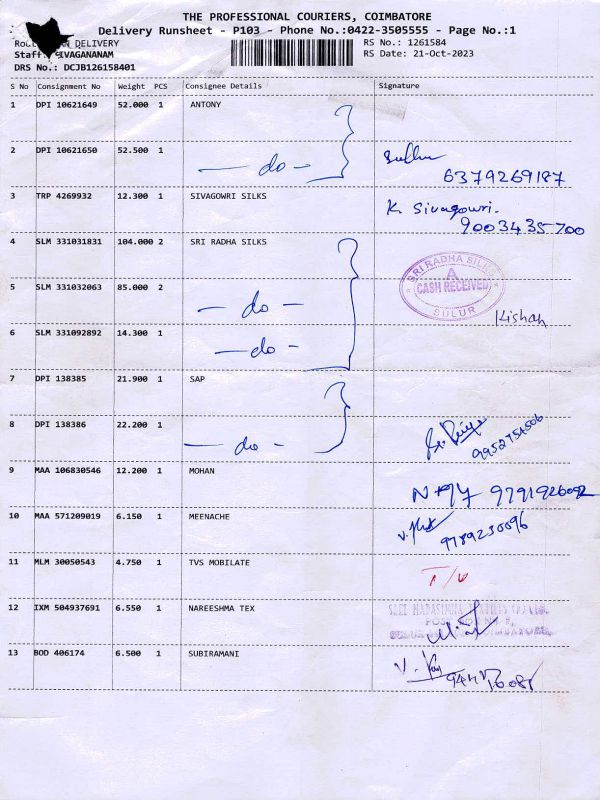 THE PROFESSIONAL COURIERS, COIMBATORE
Delivery Runsheet - P103 - Phone No.:0422-3505555 - Page No.:1
DELIVERY
RS No.: 1261584
Staff: SIVAGANANAM
RS Date: 21-Oct-2023
DRS No.: DCJB126158401
S No Consignment No Weight PCS Consignee Details Signature
1 DPI 10621649 52.000 1 ANTONY
2 DPI 10621650 52.500 1 — do — Sullur
6379269187
3 TRP 4269932 12.300 1 SIVAGOWRI SILKS K. Sivagowri.
9003435700
4 SLM 331031831 104.000 2 SRI RADHA SILKS
SRI RADHA SILKS
A
CASH RECEIVED
SULUR
5 SLM 331032063 85.000 2 — do — Kishan
6 SLM 331092892 14.300 1 — do —
7 DPI 138385 21.900 1 SAP
8 DPI 138386 22.200 1 — do — 9952754506
9 MAA 106830546 12.200 1 MOHAN 9791926092
10 MAA 571209019 6.150 1 MEENACHE 9789230096
11 MLM 30050543 4.750 1 TVS MOBILATE
12 IXM 504937691 6.550 1 NAREESHMA TEX
13 BOD 406174 6.500 1 SUBIRAMANI